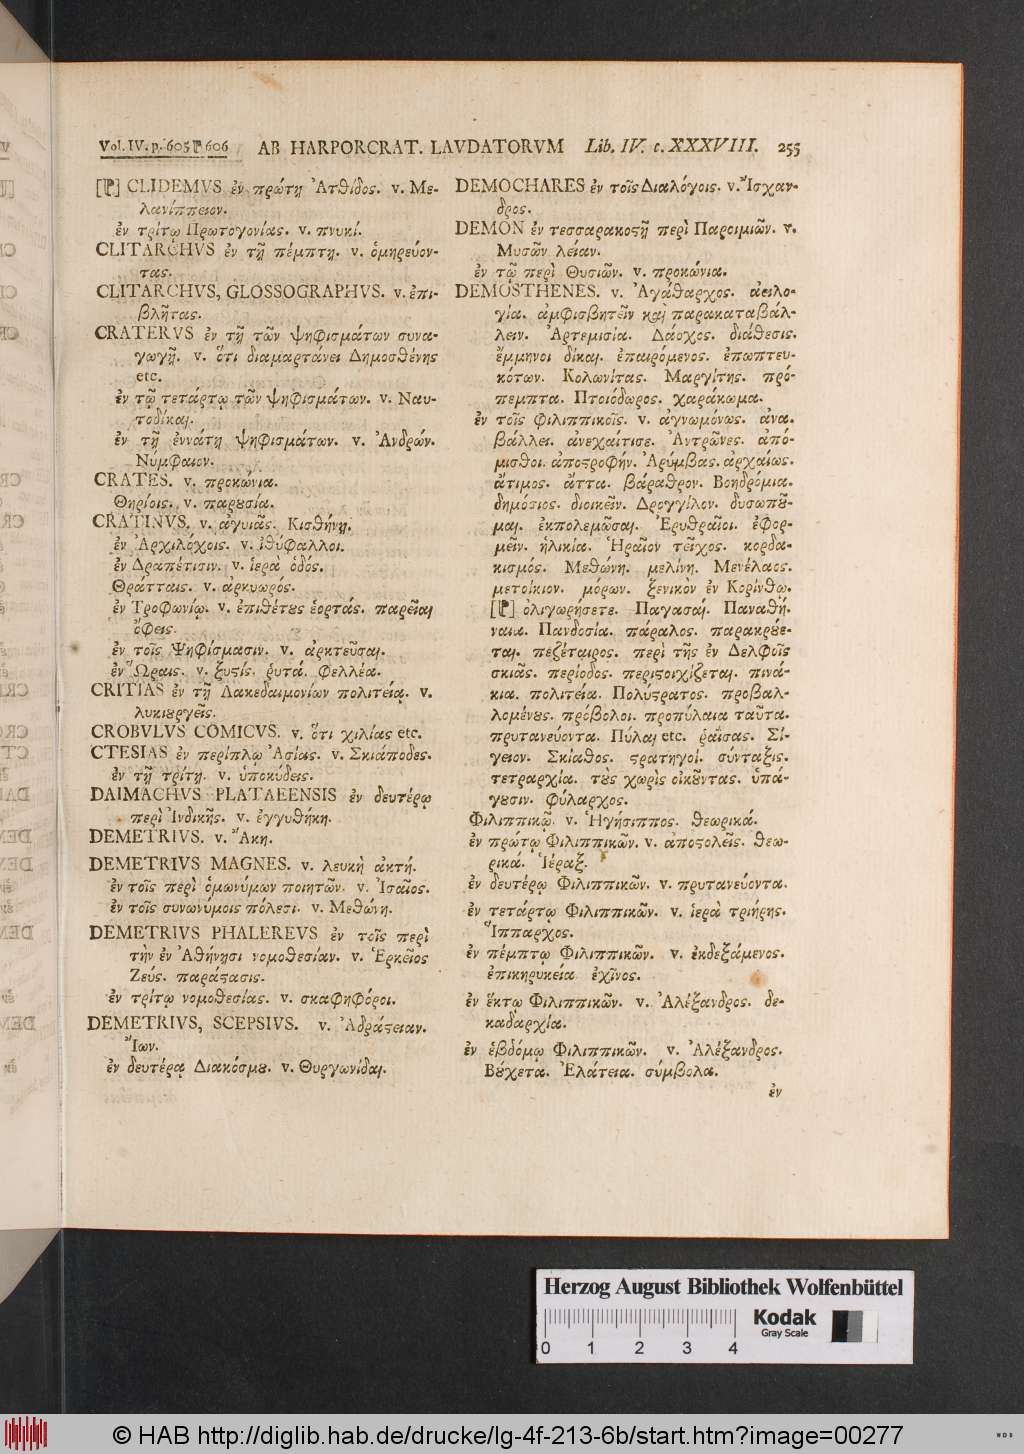 Vol. IV. p. 605 606 AB HARPORCRAT. LAVDATORVM Lib. IV. c. XXXVIII. 255
CLIDEMVS ἐν πρώτῃ Ἀτθίδος. v. Με-
λανίππειον.
ἐν τρίτῳ Πρωτογονίας. v. πνυκί.
CLITARCHVS ἐν τῇ πέμπτῃ. v. ὁμηρεύον-
τας.
CLITARCHVS, GLOSSOGRAPHVS. v. ἐπι-
βλῆτας.
CRATERVS ἐν τῇ τῶν ψηφισμάτων συνα-
γωγῇ. v. ὅτι διαμαρτάνει Δημοσθένης
etc.
ἐν τῷ τετάρτῳ τῶν ψηφισμάτων. v. Ναυ-
τοδίκαι.
ἐν τῇ ἐννάτῃ ψηφισμάτων. v. Ἀνδρών.
Νύμφαιον.
CRATES. v. προκώνια.
Θηρίοις. v. παρουσία.
CRATINVS. v. ἀγυιᾶς. Κισθήνη.
ἐν Ἀρχιλόχοις. v. ἰθύφαλλοι.
ἐν Δραπέτισιν. v. ἱερὰ ὁδός.
Θράτταις. v. ἀρκυωρός.
ἐν Τροφωνίῳ. v. ἐπιθέτους ἑορτάς. παρεῖαι
ὄφεις.
ἐν τοῖς Ψηφίσμασιν. v. ἀρκτεῦσαι.
ἐν Ὥραις. v. ξυστίς. ῥυτά. Φελλέα.
CRITIAS ἐν τῇ Λακεδαιμονίων πολιτείᾳ. v.
λυκιουργεῖς.
CROBVLVS COMICVS. v. ὅτι χιλίας etc.
CTESIAS ἐν περίπλῳ Ἀσίας. v. Σκιάποδες.
ἐν τῇ τρίτῃ. v. ὑποκύδεις.
DAIMACHVS PLATAEENSIS ἐν δευτέρῳ
περὶ Ἰνδικῆς. v. ἐγγυθήκη.
DEMETRIVS. v. Ἄκη.
DEMETRIVS MAGNES. v. λευκὴ ἀκτή.
ἐν τοῖς περὶ ὁμωνύμων ποιητῶν. v. Ἰσαῖος.
ἐν τοῖς συνωνύμοις πόλεσι. v. Μεθώνη.
DEMETRIVS PHALEREVS ἐν τοῖς περὶ
τὴν ἐν Ἀθήνησι νομοθεσίαν. v. Ἑρκεῖος
Ζεύς. παράστασις.
ἐν τρίτῳ νομοθεσίας. v. σκαφηφόροι.
DEMETRIVS, SCEPSIVS. v. Ἀδράστειαν.
Ἴων.
ἐν δευτέρᾳ Διακόσμου. v. Θυργωνίδαι.
DEMOCHARES ἐν τοῖς Διαλόγοις. v. Ἴσχαν-
δρος.
DEMON ἐν τεσσαρακοστῇ περὶ Παροιμιῶν. v.
Μυσῶν λείαν.
ἐν τῷ περὶ Θυσιῶν. v. προκώνια.
DEMOSTHENES. v. Ἀγάθαρχος. ἀειλο-
γία. ἀμφισβητεῖν καὶ παρακαταβάλ-
λειν. Ἀρτεμισία. Δάοχος. διάθεσις.
ἔμμηνοι δίκαι. ἐπαιρόμενος. ἐπωπτευ-
κότων. Κολωνίτας. Μαργίτης. πρό-
πεμπτα. Πτοιόδωρος. χαράκωμα.
ἐν τοῖς φιλιππικοῖς. v. ἀγνωμόνως. ἀνα-
βάλλει. ἀνεχαίτισε. Ἀντρῶνες. ἀπό-
μισθοι. ἀποστροφήν. Ἀρύμβας. ἀρχαίως.
ἄτιμος. ἄττα. βάραθρον. Βοηδρόμια.
δημόσιος. διοικεῖν. Δρογγίλον. δυσωποῦ-
μαι. ἐκπολεμῶσαι. Ἐρυθραῖοι. ἐφορ-
μεῖν. ἡλικία. Ἡραῖον τεῖχος. κορδα-
κισμός. Μεθώνη. μελίνη. Μενέλαος.
μετοίκιον. μόρων. ξενικὸν ἐν Κορίνθῳ.
ὀλιγωρήσετε. Παγασαί. Παναθή-
ναια. Πανδοσία. πάραλος. παρακρούε-
ται. πεζέταιρος. περὶ τῆς ἐν Δελφοῖς
σκιᾶς. περίοδος. περιστοιχίζεται. πινά-
κια. πολιτεία. Πολύστρατος. προβαλ-
λομένους. πρόβολοι. προπύλαια ταῦτα.
πρυτανεύοντα. Πύλαι etc. ῥαΐσας. Σί-
γειον. Σκίαθος. στρατηγοί. σύνταξις.
τετραρχία. τοὺς χωρὶς οἰκοῦντας. ὑπά-
γουσιν. φύλαρχος.
Φιλιππικῷ. v. Ἡγήσιππος. θεωρικά.
ἐν πρώτῳ Φιλιππικῶν. v. ἀποστολεῖς. θεω-
ρικά. Ἱέραξ.
ἐν δευτέρῳ Φιλιππικῶν. v. πρυτανεύοντα.
ἐν τετάρτῳ Φιλιππικῶν. v. ἱερὰ τριήρης.
Ἵππαρχος.
ἐν πέμπτῳ Φιλιππικῶν. v. ἐκδεξάμενος.
ἐπικηρυκεία ἐχῖνος.
ἐν ἕκτῳ Φιλιππικῶν. v. Ἀλέξανδρος. δε-
καδαρχία.
ἐν ἑβδόμῳ Φιλιππικῶν. v. Ἀλέξανδρος.
Βούχετα. Ἐλάτεια. σύμβολα.
ἐν
Herzog August Bibliothek Wolfenbüttel
Kodak
Gray Scale
0 1 2 3 4
© HAB http://diglib.hab.de/drucke/lg-4f-213-6b/start.htm?image=00277